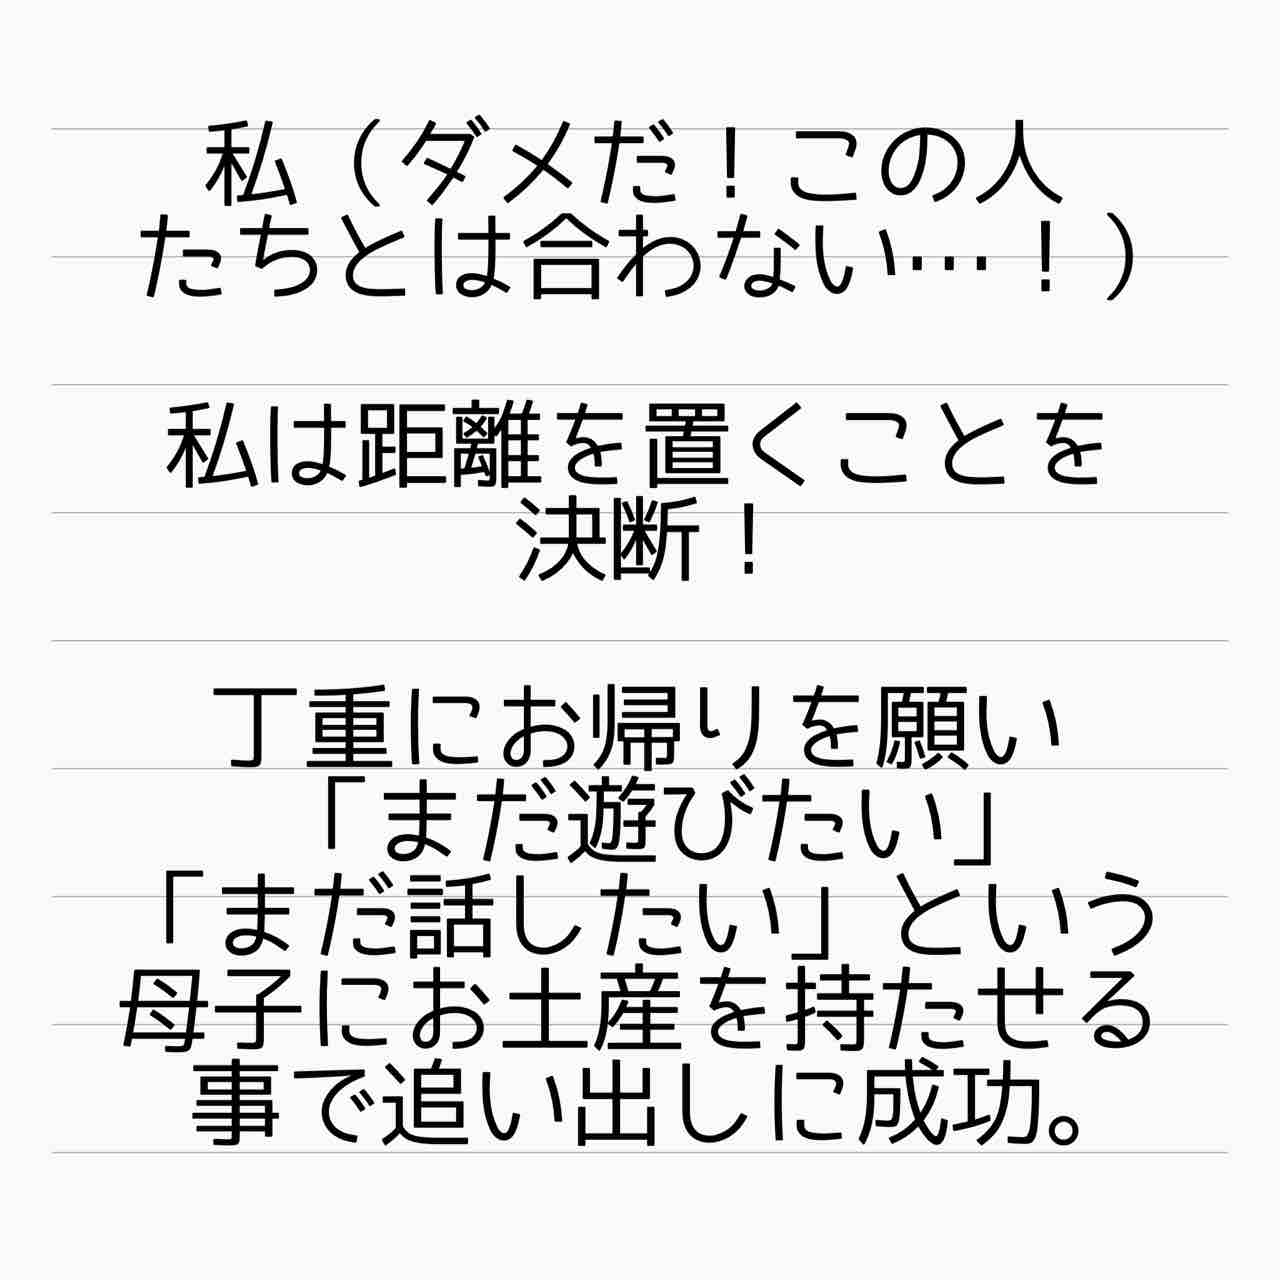 私（ダメだ！この人
たちとは合わない…！）
私は距離を置くことを
決断！
丁重にお帰りを願い
「まだ遊びたい」
「まだ話したい」という
母子にお土産を持たせる
事で追い出しに成功。